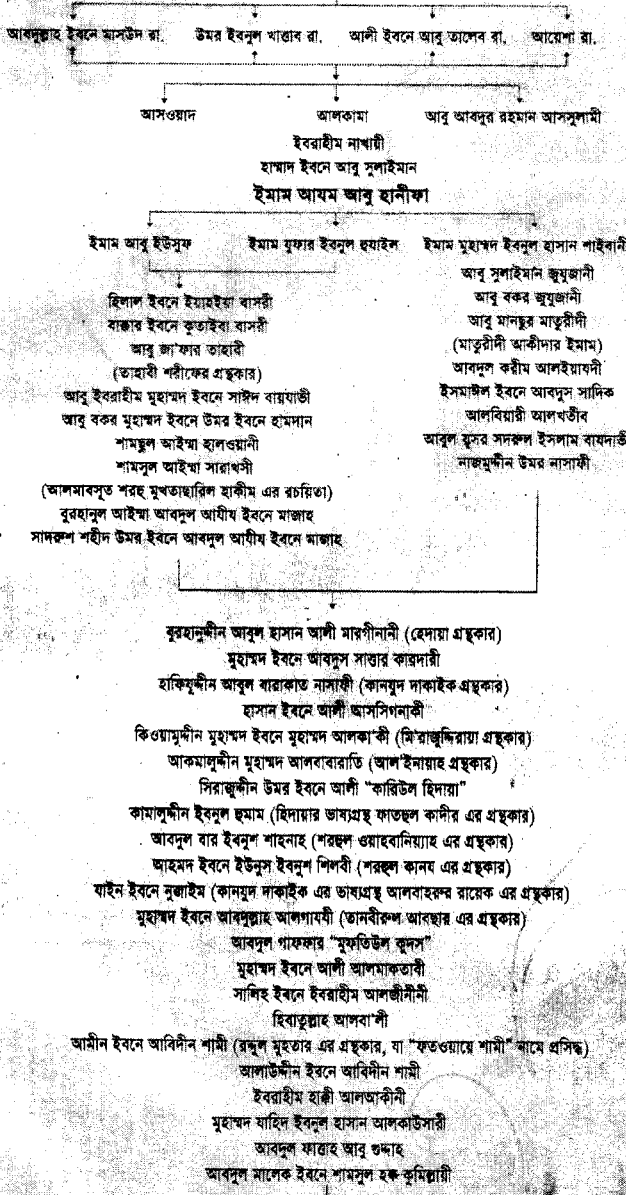 আবদুল্লাহ ইবনে মাসউদ রা. উমর ইবনুল খাত্তাব রা. আলী ইবনে আবু তালেব রা. আয়েশা রা.
আসওয়াদ আলকামা আবু আবদুর রহমান আসসুলামী
ইবরাহীম নাখায়ী
হাম্মাদ ইবনে আবু সুলাইমান
ইমাম আযম আবু হানীফা
ইমাম আবু ইউসুফ ইমাম যুফার ইবনুল হুযাইল ইমাম মুহাম্মদ ইবনুল হাসান শাইবানী
হিলাল ইবনে ইয়াহইয়া বাসরী
বাক্কার ইবনে কুতাইবা বাসরী
আবু জা'ফার তাহাবী
(তাহাবী শরীফের গ্রন্থকার)
আবু ইবরাহীম মুহাম্মদ ইবনে সাঈদ বায়যাভী
আবু বকর মুহাম্মদ ইবনে উমর ইবনে হামদান
শামছুল আইম্মা হালওয়ানী
শামসুল আইম্মা সারাখসী
(আলমাবসূত শরহু মুখতাছারিল হাকীম এর রচয়িতা)
বুরহানুল আইম্মা আবদুল আযীয ইবনে মাজাহ
সাদরুশ শহীদ উমর ইবনে আবদুল আযীয ইবনে মাজাহ
আবু সুলাইমান জুযুজানী
আবু বকর জুযুজানী
আবু মানছুর মাতুরীদী
(মাতুরীদী আকীদার ইমাম)
আবদুল করীম আলইয়াযদী
ইসমাঈল ইবনে আবদুস সাদিক
আলবিয়ারী আলখতীব
আবুল য়ুসর সদরুল ইসলাম বাযদাভী
নাজমুদ্দীন উমর নাসাফী
বুরহানুদ্দীন আবুল হাসান আলী মারগীনানী (হেদায়া গ্রন্থকার)
মুহাম্মদ ইবনে আবদুস সাত্তার কারদারী
হাফিযুদ্দীন আবুল বারাকাত নাসাফী (কানযুদ দাকাইক গ্রন্থকার)
হাসান ইবনে আলী আসসিগনাকী
কিওয়ামুদ্দীন মুহাম্মদ ইবনে মুহাম্মদ আলকা'কী (মি'রাজুদ্দিরায়া গ্রন্থকার)
আকমালুদ্দীন মুহাম্মদ আলবাবারাতি (আল'ইনায়াহ গ্রন্থকার)
সিরাজুদ্দীন উমর ইবনে আলী "কারিউল হিদায়া"
কামালুদ্দীন ইবনুল হুমাম (হিদায়ার ভাষ্যগ্রন্থ ফাতহুল কাদীর এর গ্রন্থকার)
আবদুল বার ইবনুশ শাহনাহ (শরহুল ওয়াহবানিয়্যাহ এর গ্রন্থকার)
আহমদ ইবনে ইউনুস ইবনুশ শিলবী (শরহুল কানয এর গ্রন্থকার)
যাইন ইবনে নুজাইম (কানযুদ দাকাইক এর ভাষ্যগ্রন্থ আলবাহরুর রায়েক এর গ্রন্থকার)
মুহাম্মদ ইবনে আবদুল্লাহ আলগাযযী (তানবীরুল আবছার এর গ্রন্থকার)
আবদুল গাফফার "মুফতিউল কুদস"
মুহাম্মদ ইবনে আলী আলমাকতাবী
সালিহ ইবনে ইবরাহীম আলজীনীনী
হিবাতুল্লাহ আলবা'লী
আমীন ইবনে আবিদীন শামী (রদ্দুল মুহতার এর গ্রন্থকার, যা "ফতওয়ায়ে শামী" নামে প্রসিদ্ধ)
আলাউদ্দীন ইবনে আবিদীন শামী
ইবরাহীম হাক্কী আলআকীনী
মুহাম্মদ যাহিদ ইবনুল হাসান আলকাউসারী
আবদুল ফাত্তাহ আবু গুদ্দাহ
আবদুল মালেক ইবনে শামসুল হক কুমিল্লায়ী